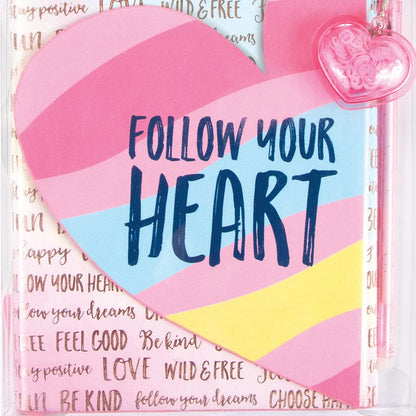 stay positive LOVE WILD & FREE
FUN BE KIND follow your dreams
FOLLOW YOUR
HEART
happy
FOLLOW YOUR HEART
follow your dreams
FREE FEEL GOOD Be kind
stay positive LOVE WILD & FREE
FUN BE KIND follow your dreams CHOOSE HAPPY